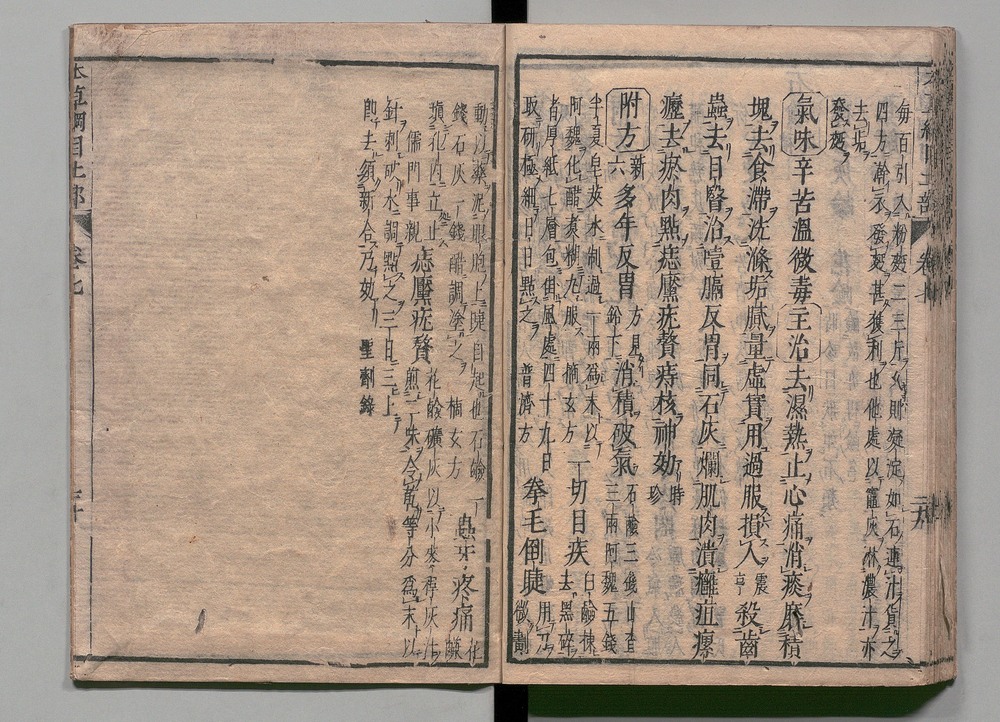 每百引入粉麪二三斤乆則凝淀如石連汁貨之
四方澣衣發麪甚獲利也他處以竈灰淋濃汁亦
去垢
發麪
氣味辛苦溫微毒主治去濕熱止心痛消痰磨積
塊去食滯洗滌垢膩量虛實用過服損人震亨殺齒
蟲去目瞖治噎膈反胃同石灰爛肌肉潰癰疽瘰
癧去瘀肉點痣黶疣贅痔核神効時珍
附方新六多年反胃方見鉛下消積破氣石鹼三錢山查
三兩阿魏五錢
半夏皂莢水制過一兩爲末以
阿魏化醋煑糊丸服摘玄方一切目疾白鹼揀
去黑碎
者厚紙七層包挂風處四十九日
取研極細日日點之普濟方拳毛倒睫用刀
微劃
動以藥泥眼胞上睫自起也石鹼一
錢石灰一錢醋調塗之摘玄方蟲牙疼痛花
鹼
填孔內立止
儒門事親痣黶疣贅花鹼礦灰以小麥稈灰汁
煎二味令乾等分爲末以
針刺破水調點之三日三上
卽去須新合乃効聖劑錄
本草綱目土部
卷七